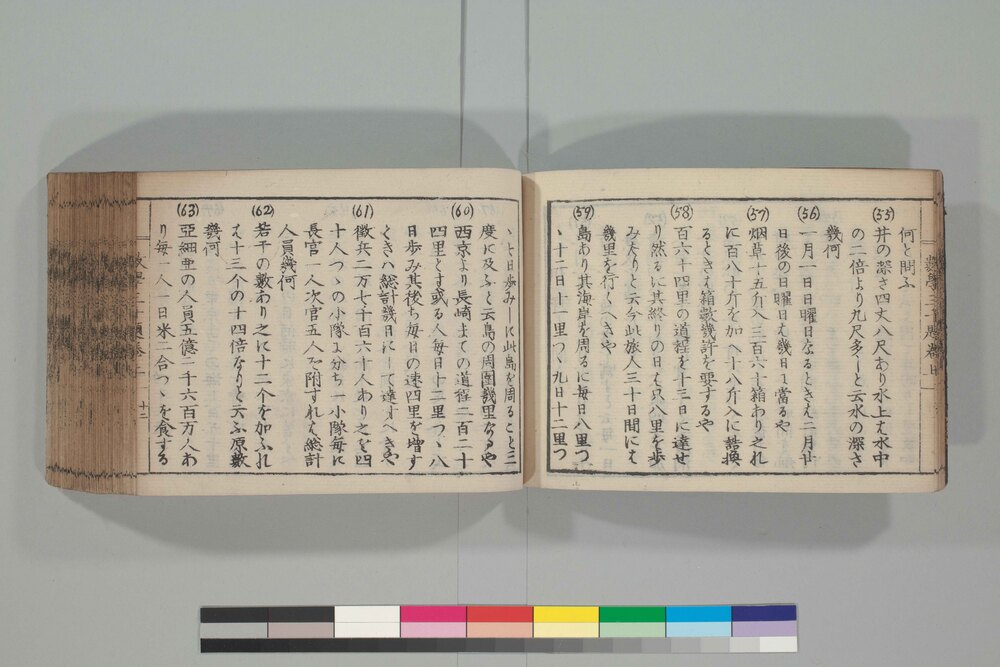 何と問ふ
(55)
井の深さ四丈八尺あり水上は水中
の二倍より九尺多しと云水の深さ
幾何
(56)
一月一日日曜なるときは二月廿
日後の日曜日は幾日に當るや
(57)
烟草十五斤入三百六十箱あり之れ
に百八十斤を加へ十八斤入に詰換
るときは箱數幾許を要するや
(58)
百六十四里の道程を十三日に達せ
り然るに其終りの日は只八里を歩
みたりと云今此旅人三十日間には
幾里を行くへきや
(59)
島あり其海岸を周るに毎日八里つ
ゝ十二日十一里つゝ九日十二里つ
ゝ七日歩みしに此島を周ること三
度に及ふと云島の周圍幾里なるや
(60)
西京より長崎まての道程二百二十
四里とす或る人毎日十二里つゝ八
日歩み其後ち毎日の速四里を增す
くきハ総計幾日にして達すへきや
(61)
徵兵二万七千百六十人あり之を四
十人つゝの小隊に分ち一小隊毎に
長官一人次官五人を附すれは総計
人員幾何
(62)
若干の數あり之に十二个を加ふれ
は十三个の十四倍なりと云ふ原數
幾何
(63)
亞細亜の人員五億二千六百万人あ
り毎一人一日米二合つゝを食する
十二